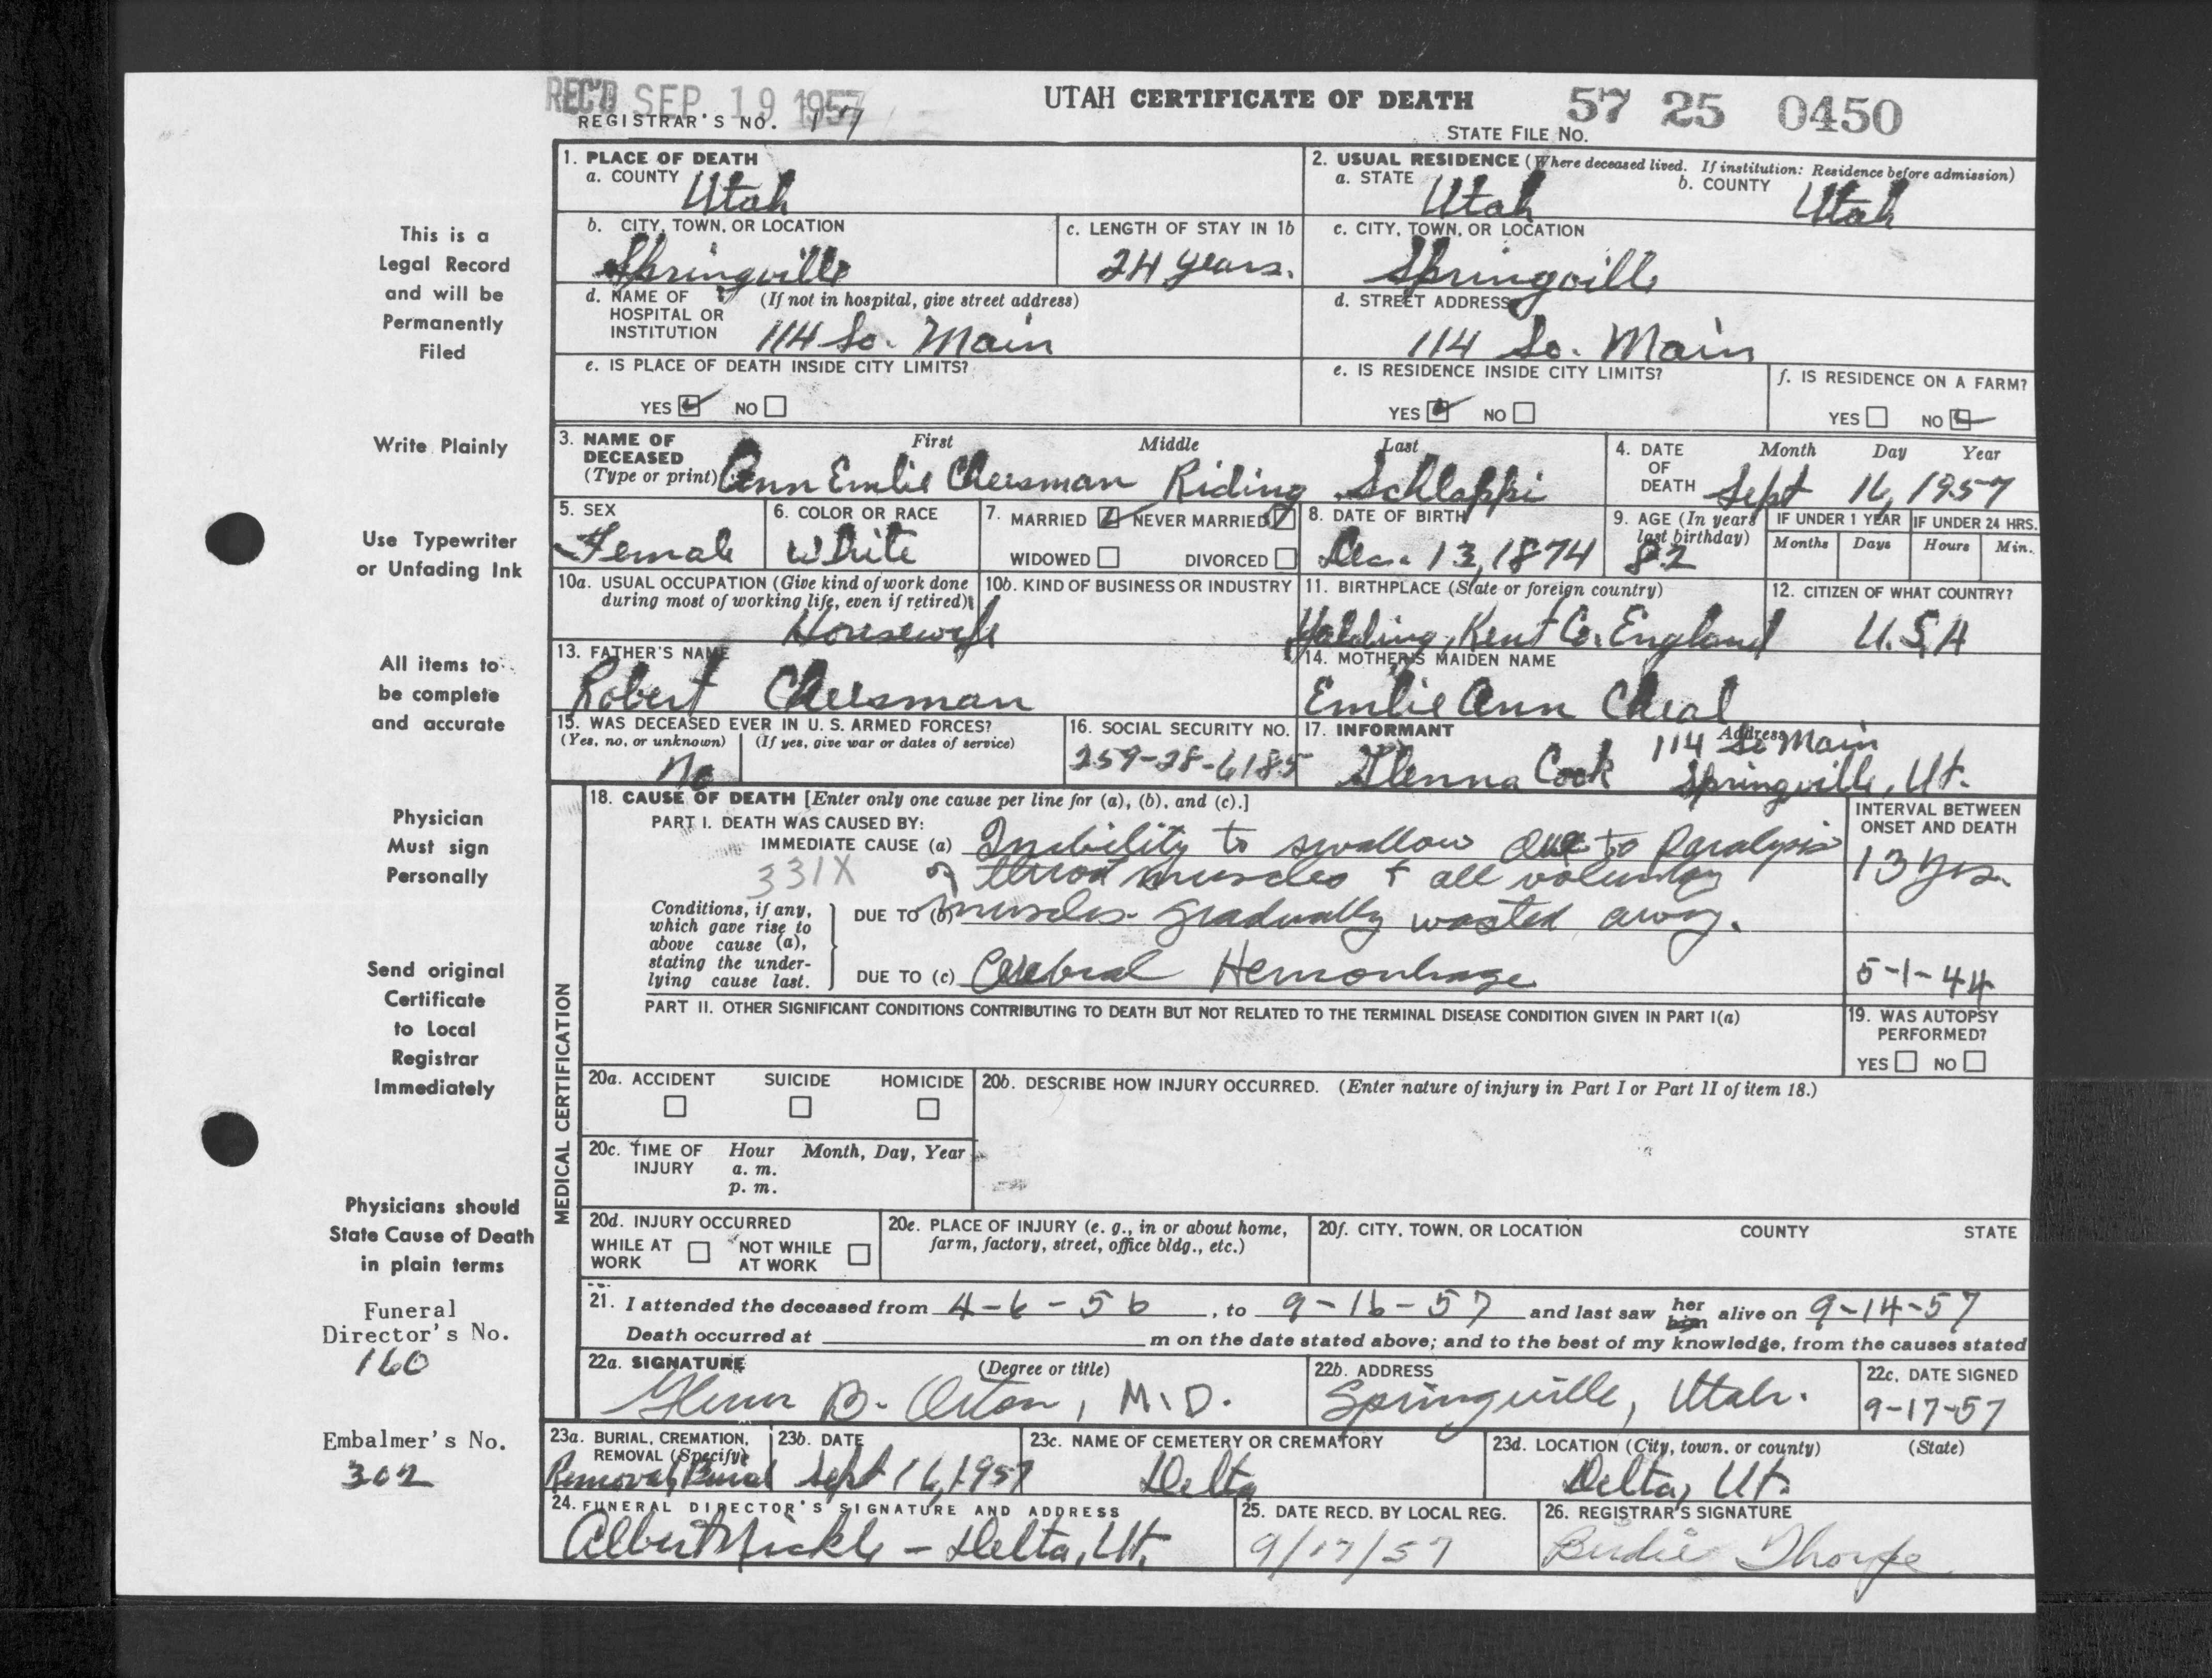 REC'D SEP 19 1957
UTAH CERTIFICATE OF DEATH
57 25 0450
REGISTRAR'S NO. 17
STATE FILE NO.
This is a
Legal Record
and will be
Permanently
Filed
Write Plainly
Use Typewriter
or Unfading Ink
All items to
be complete
and accurate
Physician
Must sign
Personally
Send original
Certificate
to Local
Registrar
Immediately
Physicians should
State Cause of Death
in plain terms
Funeral
Director's No.
160
Embalmer's No.
302
1. PLACE OF DEATH
a. COUNTY
Utah
2. USUAL RESIDENCE (Where deceased lived. If institution: Residence before admission)
a. STATE Utah b. COUNTY Utah
b. CITY, TOWN, OR LOCATION
Springville
c. LENGTH OF STAY IN 1b
24 years.
c. CITY, TOWN, OR LOCATION
Springville
d. NAME OF (If not in hospital, give street address)
HOSPITAL OR
INSTITUTION 114 So. Main
d. STREET ADDRESS
114 So. Main
e. IS PLACE OF DEATH INSIDE CITY LIMITS?
YES NO
e. IS RESIDENCE INSIDE CITY LIMITS?
YES NO
f. IS RESIDENCE ON A FARM?
YES NO
3. NAME OF DECEASED (Type or print)
First Middle Last
Ann Emlie Cheesman Riding Schlappi
4. DATE OF DEATH
Month Day Year
Sept 16, 1957
5. SEX
Female
6. COLOR OR RACE
White
7. MARRIED NEVER MARRIED
WIDOWED DIVORCED
8. DATE OF BIRTH
Dec. 13, 1874
9. AGE (In years last birthday)
82
IF UNDER 1 YEAR
Months Days
IF UNDER 24 HRS.
Hours Min.
10a. USUAL OCCUPATION (Give kind of work done
during most of working life, even if retired)
Housewife
10b. KIND OF BUSINESS OR INDUSTRY
11. BIRTHPLACE (State or foreign country)
Yalding, Kent Co. England
12. CITIZEN OF WHAT COUNTRY?
U.S.A
13. FATHER'S NAME
Robert Cheesman
14. MOTHER'S MAIDEN NAME
Emlie Ann Cheal
15. WAS DECEASED EVER IN U. S. ARMED FORCES?
(Yes, no, or unknown) (If yes, give war or dates of service)
No
16. SOCIAL SECURITY NO.
259-28-6185
17. INFORMANT Address
Glenna Cook 114 So Main
Springville, Ut.
MEDICAL CERTIFICATION
18. CAUSE OF DEATH [Enter only one cause per line for (a), (b), and (c).]
INTERVAL BETWEEN
ONSET AND DEATH
PART I. DEATH WAS CAUSED BY:
IMMEDIATE CAUSE (a) Inability to swallow due to paralysis
331X of throat muscles + all voluntary 13 yrs.
Conditions, if any,
which gave rise to
above cause (a),
stating the under-
lying cause last.
DUE TO (b) muscles gradually wasted away.
DUE TO (c) Cerebral Hemorrhage 5-1-44
PART II. OTHER SIGNIFICANT CONDITIONS CONTRIBUTING TO DEATH BUT NOT RELATED TO THE TERMINAL DISEASE CONDITION GIVEN IN PART I(a)
19. WAS AUTOPSY
PERFORMED?
YES NO
20a. ACCIDENT SUICIDE HOMICIDE
20b. DESCRIBE HOW INJURY OCCURRED. (Enter nature of injury in Part I or Part II of item 18.)
20c. TIME OF INJURY
Hour Month, Day, Year
a. m.
p. m.
20d. INJURY OCCURRED
WHILE AT WORK NOT WHILE AT WORK
20e. PLACE OF INJURY (e. g., in or about home,
farm, factory, street, office bldg., etc.)
20f. CITY, TOWN, OR LOCATION COUNTY STATE
21. I attended the deceased from 4-6-56, to 9-16-57 and last saw her him alive on 9-14-57
Death occurred at m on the date stated above; and to the best of my knowledge, from the causes stated
22a. SIGNATURE (Degree or title)
Glenn B. Orton, M.D.
22b. ADDRESS
Springville, Utah.
22c. DATE SIGNED
9-17-57
23a. BURIAL, CREMATION,
REMOVAL (Specify)
Removal, Burial
23b. DATE
Sept 16, 1957
23c. NAME OF CEMETERY OR CREMATORY
Delta
23d. LOCATION (City, town, or county) (State)
Delta, Ut.
24. FUNERAL DIRECTOR'S SIGNATURE AND ADDRESS
Albert Nickle - Delta, Ut.
25. DATE RECD. BY LOCAL REG.
9/17/57
26. REGISTRAR'S SIGNATURE
Birdie Thorpe